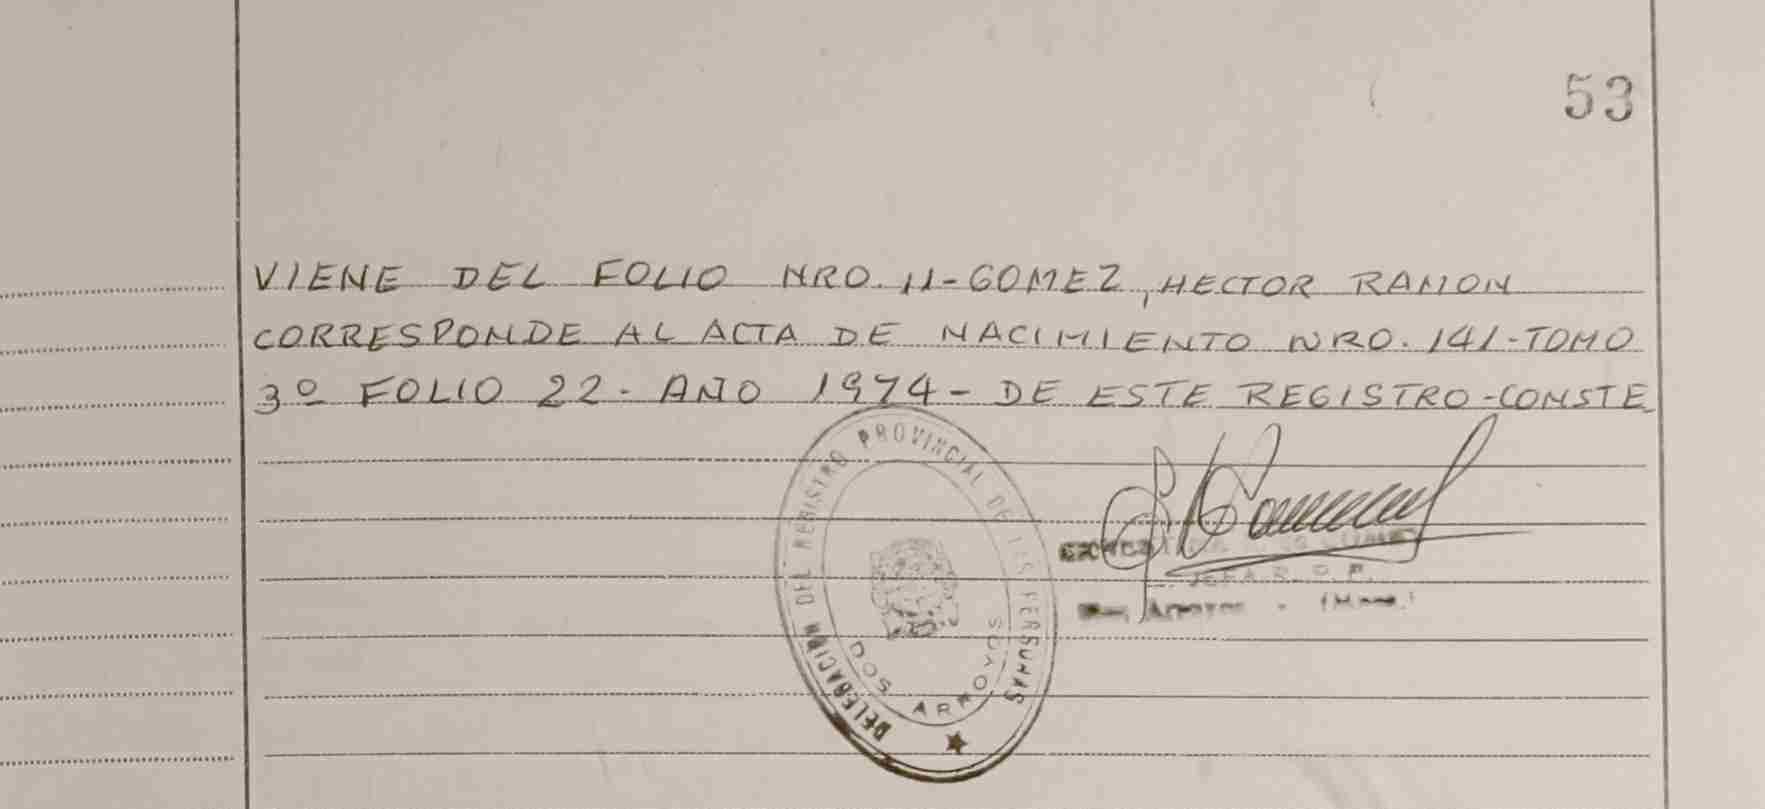 53
VIENE DEL FOLIO NRO. 11-GOMEZ, HECTOR RAMON
CORRESPONDE AL ACTA DE NACIMIENTO NRO. 141-TOMO
3º FOLIO 22- AÑO 1974- DE ESTE REGISTRO-CONSTE
DELEGACION DEL REGISTRO PROVINCIAL DE LAS PERSONAS
DOS ARROYOS
JEFA R. P.
Arroyos